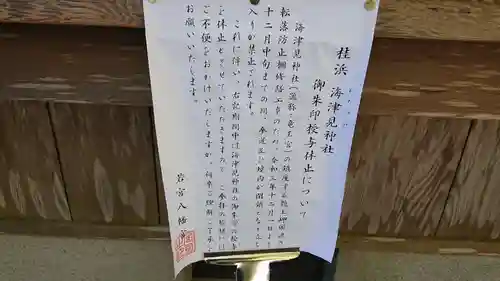 桂浜 海津見神社
御朱印授与休止について
海津見神社(通称・竜王宮)の鎮座する龍王岬周辺の
転落防止柵修繕工事のため、令和三年十二月一日より
十二月中旬までの間、参道及び境内が閉鎖となり立
入りが禁止されます。
これに伴い、右記期間中は海津見神社の御朱印の授与
を休止とさせていただきます
ご不便をおかけいたしますが、何卒ご理解ご了承
お願いいたします。
若宮八幡